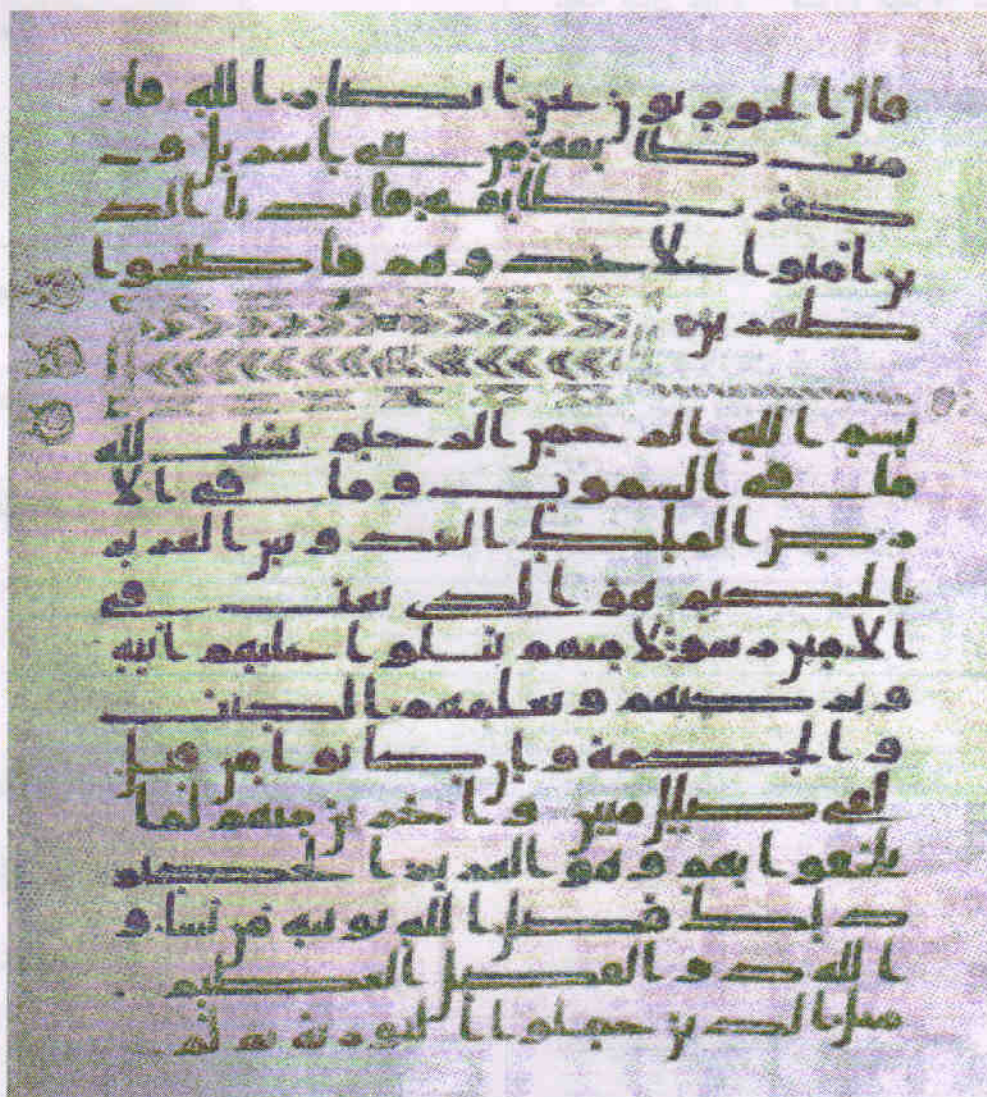 قال الحواريون نحن انصار الله فا
منت طائفة من بني اسرايل و
كفرت طائفة فايدنا الذ
ين امنوا على عدوهم فاصبحوا
ظهرين
بسم الله الرحمن الرحيم يسبح لله
ما في السموت وما في الا
رض الملك القدوس العزيز
الحكيم هو الذي بعث في
الامين رسولا منهم يتلوا عليهم ايته
ويزكيهم ويعلمهم الكتب
والحكمة وان كانوا من قبل
لفي ضلل مبين واخرين منهم لما
يلحقوا بهم وهو العزيز الحكيم
ذلك فضل الله يوتيه من يشا و
الله ذو الفضل العظيم
مثل الذين حملوا التورية ثم